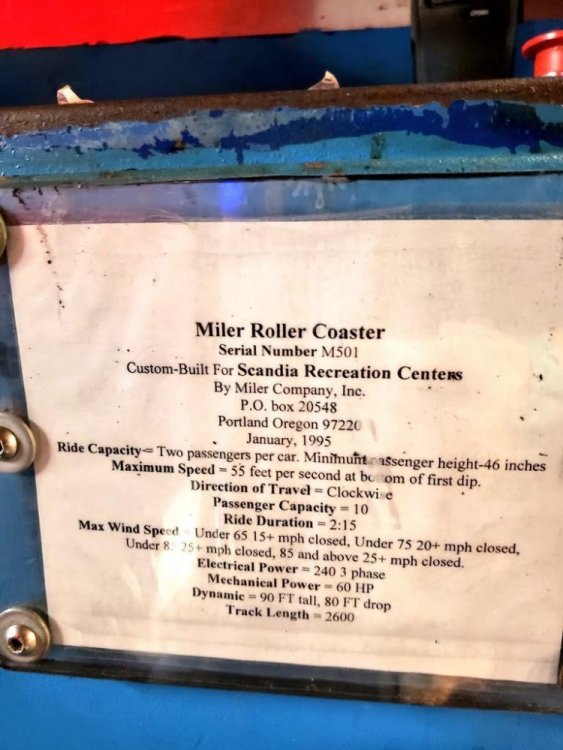 Miler Roller Coaster
Serial Number M501
Custom-Built For Scandia Recreation Centers
By Miler Company, Inc.
P.O. box 20548
Portland Oregon 97220
January, 1995
Ride Capacity= Two passengers per car. Minimum passenger height-46 inches
Maximum Speed = 55 feet per second at bottom of first dip.
Direction of Travel = Clockwise
Passenger Capacity = 10
Ride Duration = 2:15
Max Wind Speed = Under 65 15+ mph closed, Under 75 20+ mph closed,
Under 85 25+ mph closed, 85 and above 25+ mph closed.
Electrical Power = 240 3 phase
Mechanical Power = 60 HP
Dynamic = 90 FT tall, 80 FT drop
Track Length = 2600